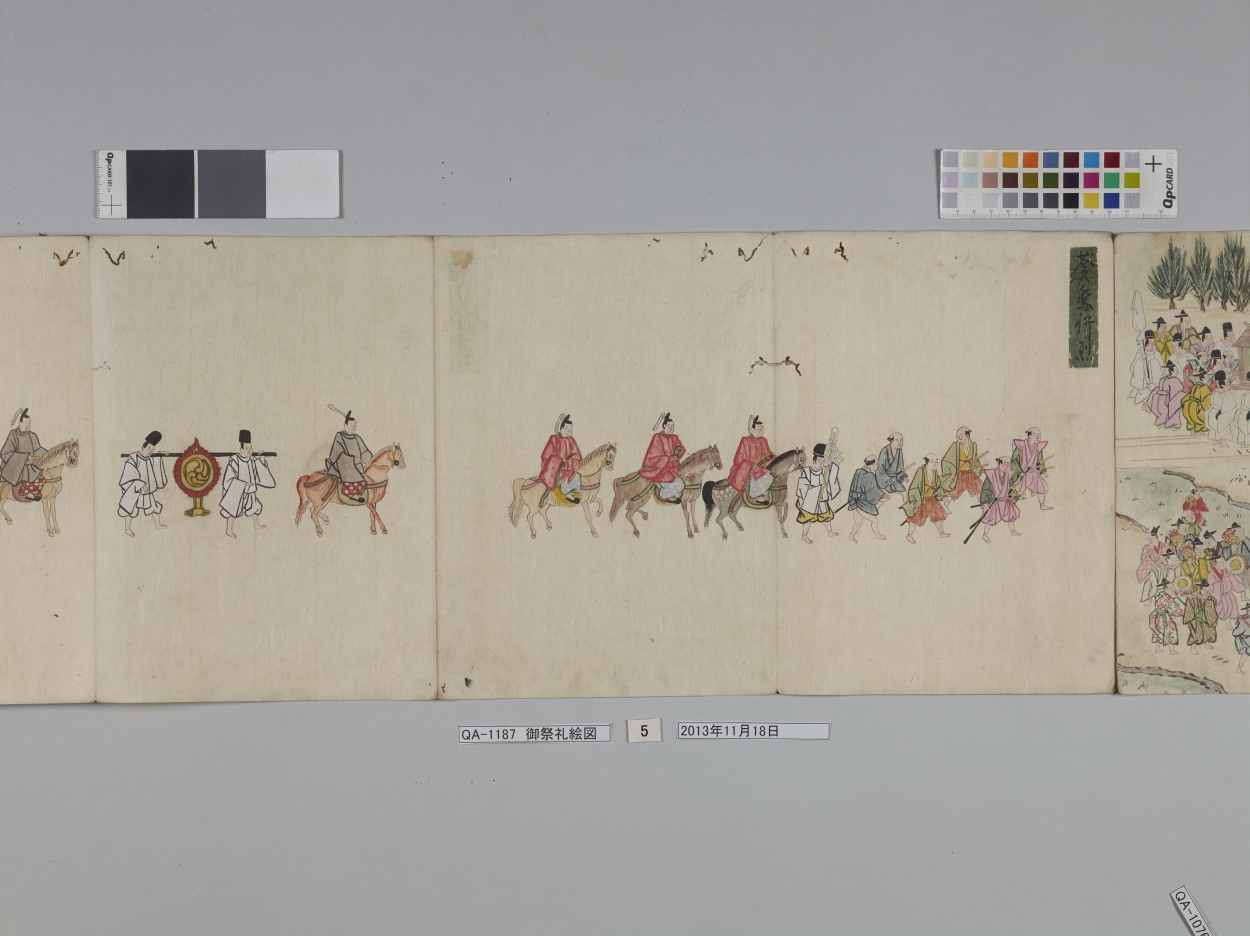 QpCARD 101
QpCARD 201
葵祭行列
QA-1187 御祭礼絵図
5
2013年11月18日
QA-1076